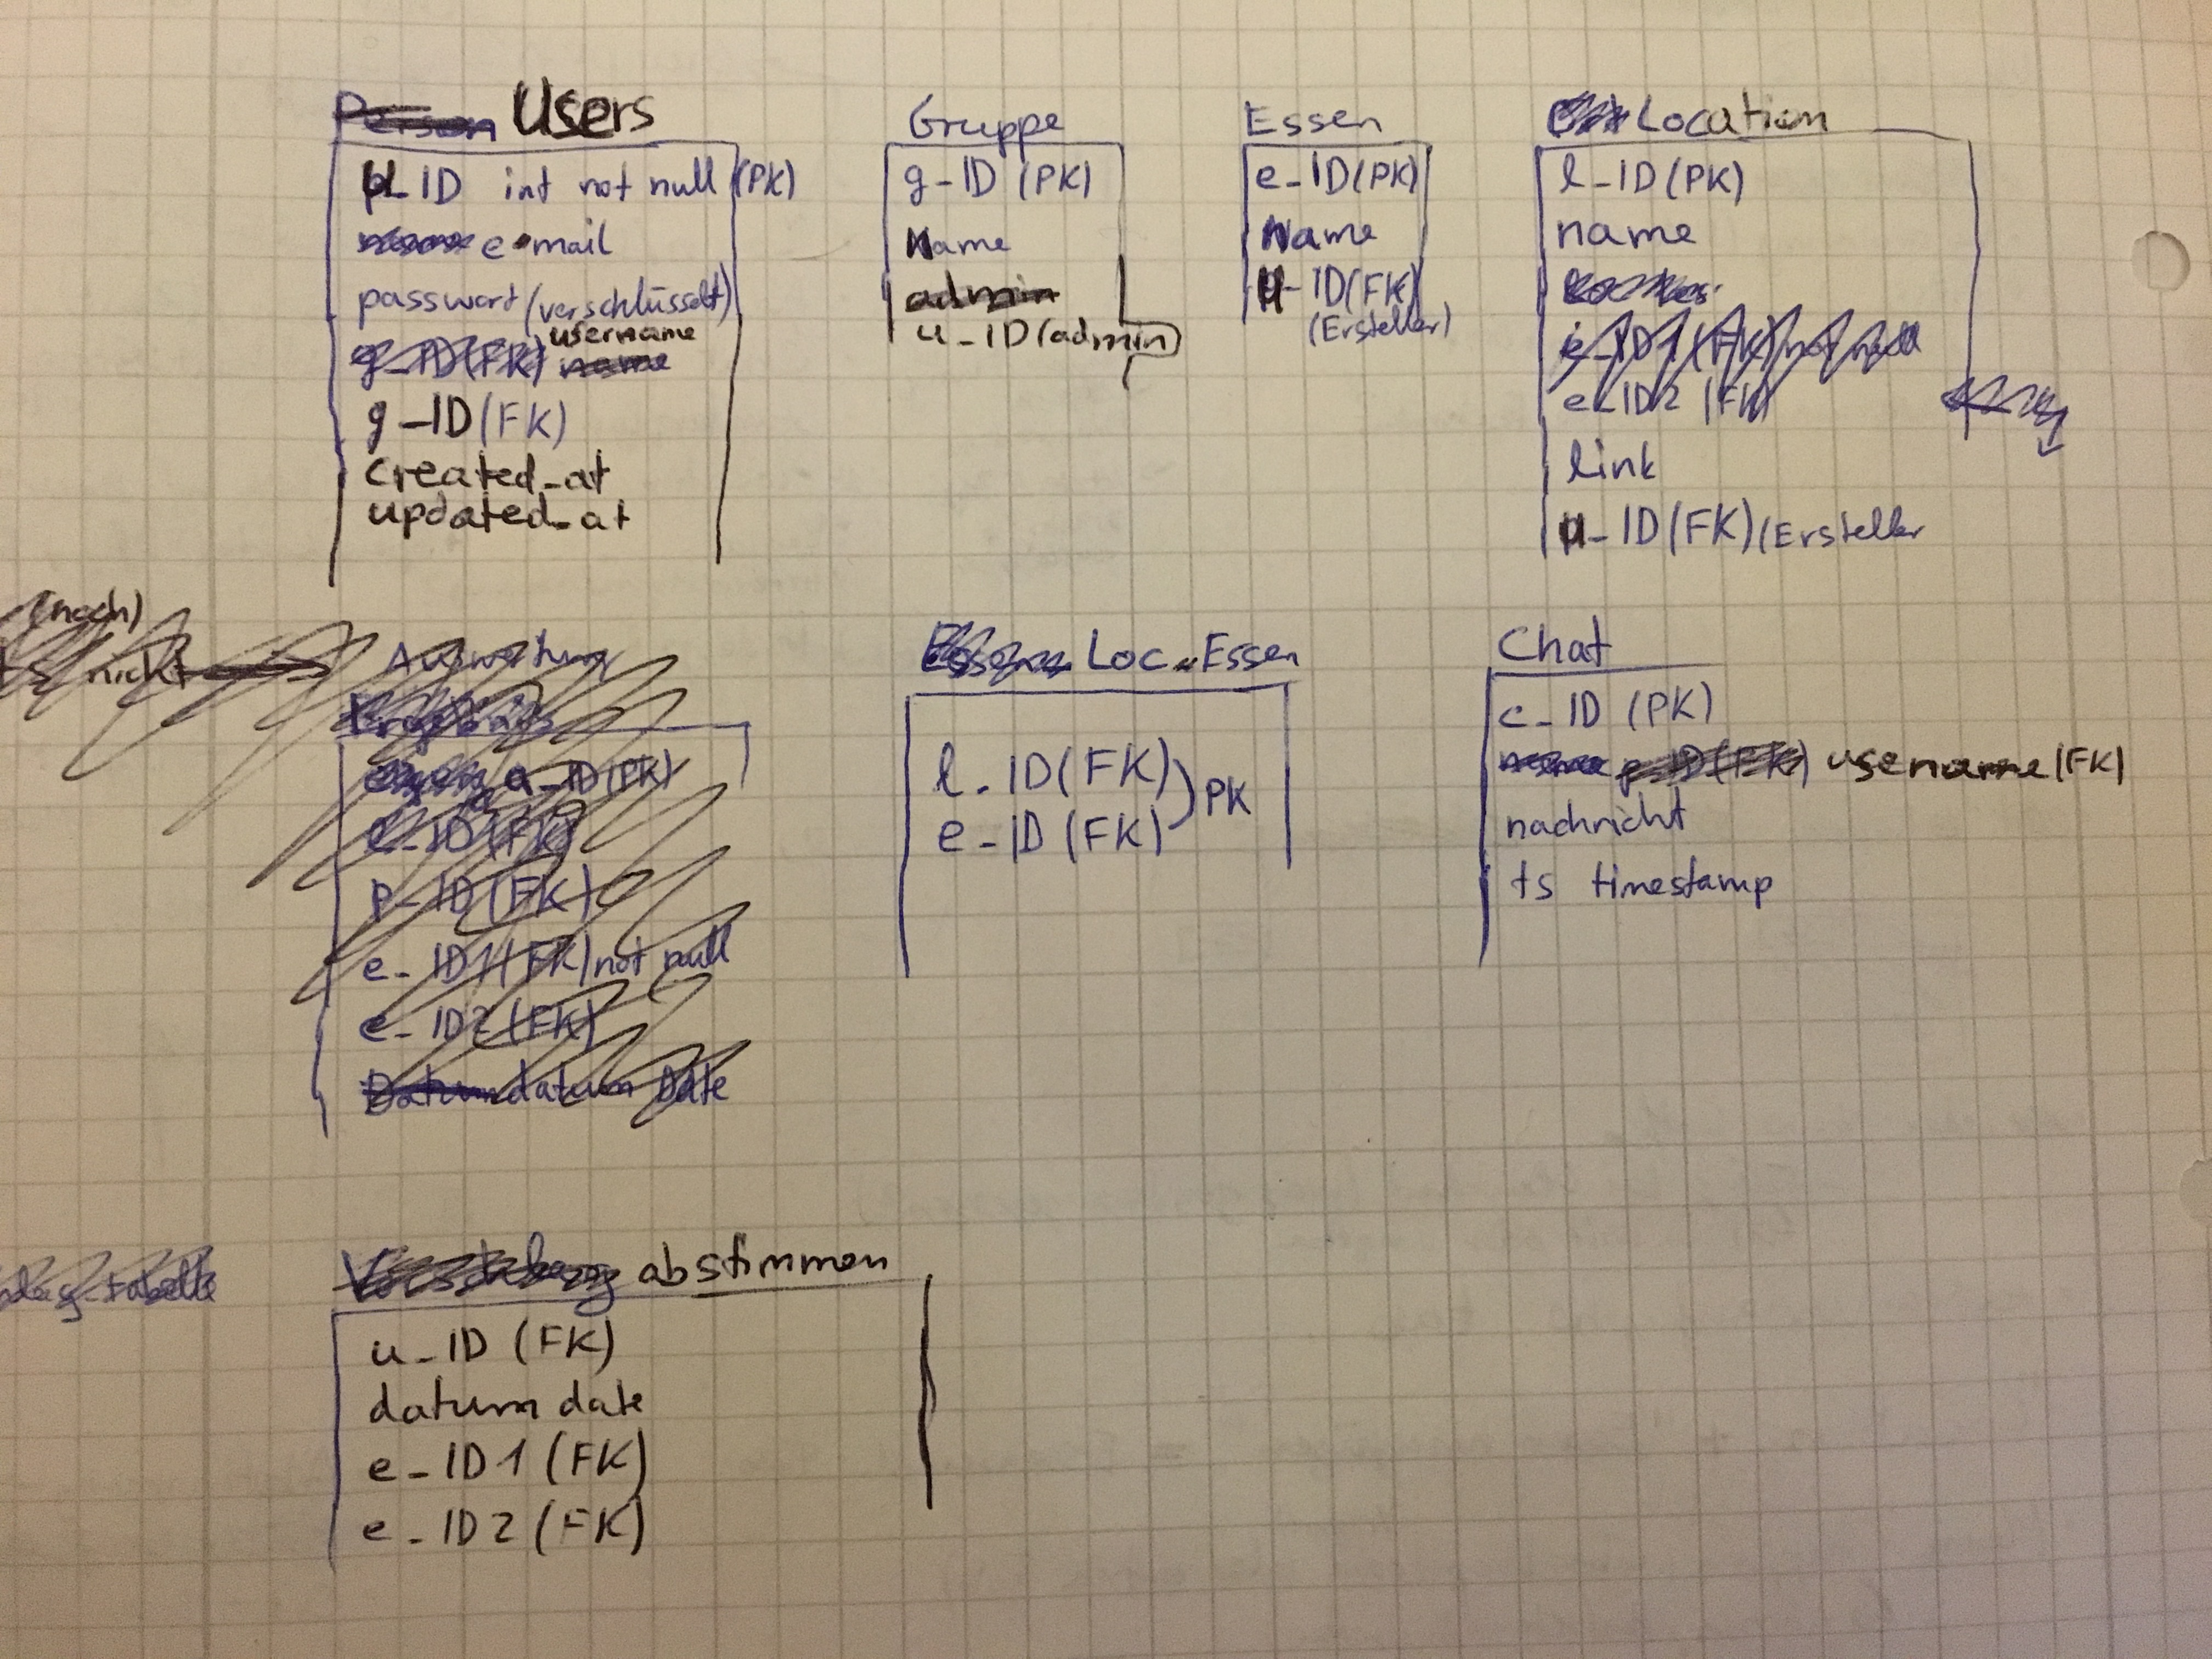 Person Users
u_ID int not null (PK)
name e-mail
passwort (verschlüsselt)
username
g_ID(FK) name
g_ID(FK)
created_at
updated_at
Gruppe
g_ID (PK)
Name
admin
u_ID (admin)
Essen
e_ID(PK)
Name
u_ID(FK)
(Ersteller)
Location
l_ID(PK)
name
e_ID1 (FK) not null
e_ID2 (FK)
link
u_ID(FK) (Ersteller
(noch)
nicht
Auswertung
Ergebnis
a_ID(PK)
p_ID(FK)
e_ID1(FK) not null
e_ID2(FK)
Datum datum Date
Essen Loc_Essen
l_ID(FK)
e_ID(FK)
PK
Chat
c_ID (PK)
name p_ID(FK) username(FK)
nachricht
ts timestamp
tabelle
abstimmen
u_ID (FK)
datum date
e_ID1 (FK)
e_ID2 (FK)